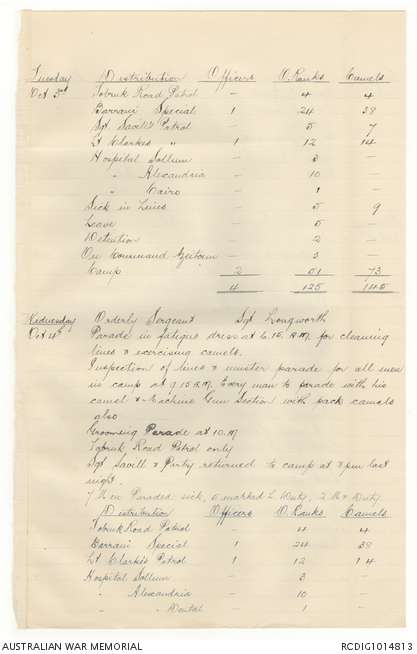 Tuesday Distribution Officers O.Ranks Camels
Oct 3rd Tobruk Road Patrol – 4 4
Barrani Special 1 24 39
Sgt Savill's Patrol – 5 7
Lt Clarkes " 1 12 14
Hospital Sollum – 3 –
" Alexandria – 10 –
" Cairo – 1 –
Sick in Lines – 5 9
Leave – 5 –
Detention – 2 –
On Command – 3 –
Camp 2 51 73
4 125 145
Wednesday Orderly Sergeant Sgt Longworth
Oct 4th Parade in fatigue dress at 6.15 A.M. for cleaning
lines & exercising camels.
Inspection of lines & muster parade for all men
in camp at 9.15 A.M. Every man to parade with his
camel & Machine Gun Section with pack camels
also
Grooming Parade at 10.M
Tobruk Road Patrol only
Sgt Savill & Party returned to camp at 8 pm last
night.
7 Men Paraded sick, 5 marked L Duty, 2 M & Duty.
Distribution Officers O.Ranks Camels
Tobruk Road Patrol – 4 4
Barrani Special 1 24 39
Lt Clarke's Patrol 1 12 14
Hospital Sollum – 3 –
" Alexandria – 10 –
" Dental – 1 –
AUSTRALIAN WAR MEMORIAL RCDIG1014813